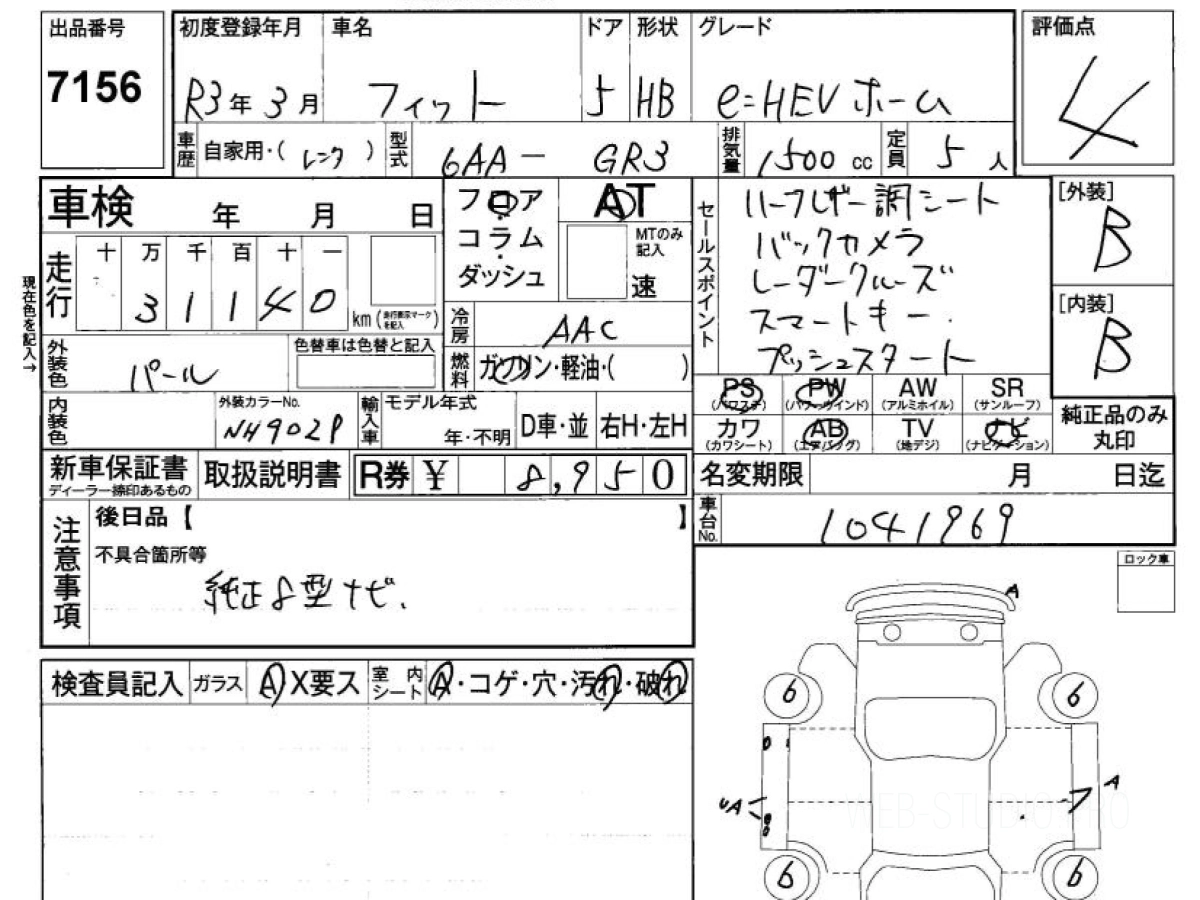 出品番号
7156
初度登録年月 車名 ドア 形状 グレード
R3年 3月 フィット 5 HB e:HEV ホーム
評価点
4
車歴 自家用・( レンタ ) 型式 6AA - GR3 排気量 1500 cc 定員 5 人
車検 年 月 日
フロア
・
コラム
・
ダッシュ
AT
MTのみ
記入
速
セールスポイント
ハーフレザー調シート
バックカメラ
レーダークルーズ
スマートキー.
プッシュスタート
[外装]
B
[内装]
B
現在色を記入→
走行 十 万 千 百 十 一
3 1 1 4 0 km (走行表示マークを記入)
冷房 AAC
燃料 ガソリン・軽油・( )
外装色 パール
色替車は色替と記入
PS (パワステ) PW (パワーウインド) AW (アルミホイル) SR (サンルーフ)
カワ (カワシート) AB (エアバッグ) TV (地デジ) ナビ (ナビゲーション)
純正品のみ
丸印
内装色 外装カラーNo. NH902P
輸入車 モデル年式 年・不明 D車・並 右H・左H
新車保証書
ディーラー捺印あるもの
取扱説明書 R券 ¥ 8,950
名変期限 月 日迄
車台No. 1041969
注意事項
後日品【 】
不具合箇所等
純正8型ナビ.
ロック車
検査員記入 ガラス A X要ス 室内シート A・コゲ・穴・汚れ・破れ
A
6 6
UA A
6 6
WEB-STUDIOS.RO